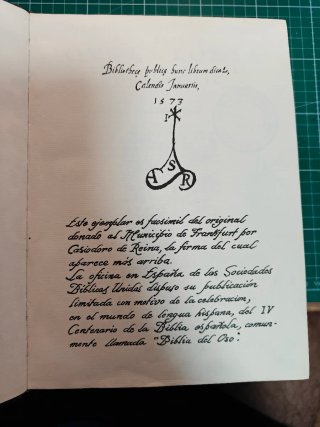 Bibliothecę publicę hunc librum dicat,
Calendis Januarii,
1573
I
S
R
Este ejemplar es facsimil del original
donado al Municipio de Frankfurt por
Casiodoro de Reina, la firma del cual
aparece más arriba.
La oficina en España de las Sociedades
Bíblicas Unidas dispuso su publicación
limitada con motivo de la celebración,
en el mundo de lengua hispana, del IV
Centenario de la Biblia española, comun-
mente llamada "Biblia del Oso".